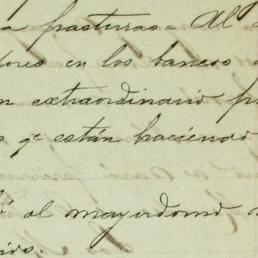 a fracturas = Al
dores en los bancos
n extraordinario
s qe están haciendo
ó al mayordomo